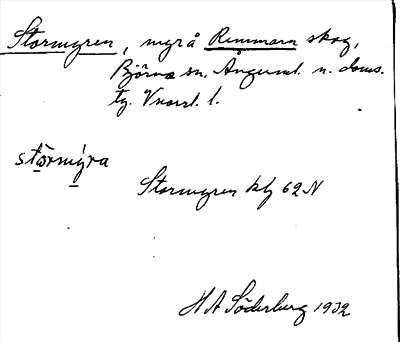 Stormyren, myrå Remmarn skog,
Björna sn. Ångerml. n. doms.
tg. Vnorrl. l.
stòrmýra
Stormyren kbl 62 N
H A Söderberg 1932